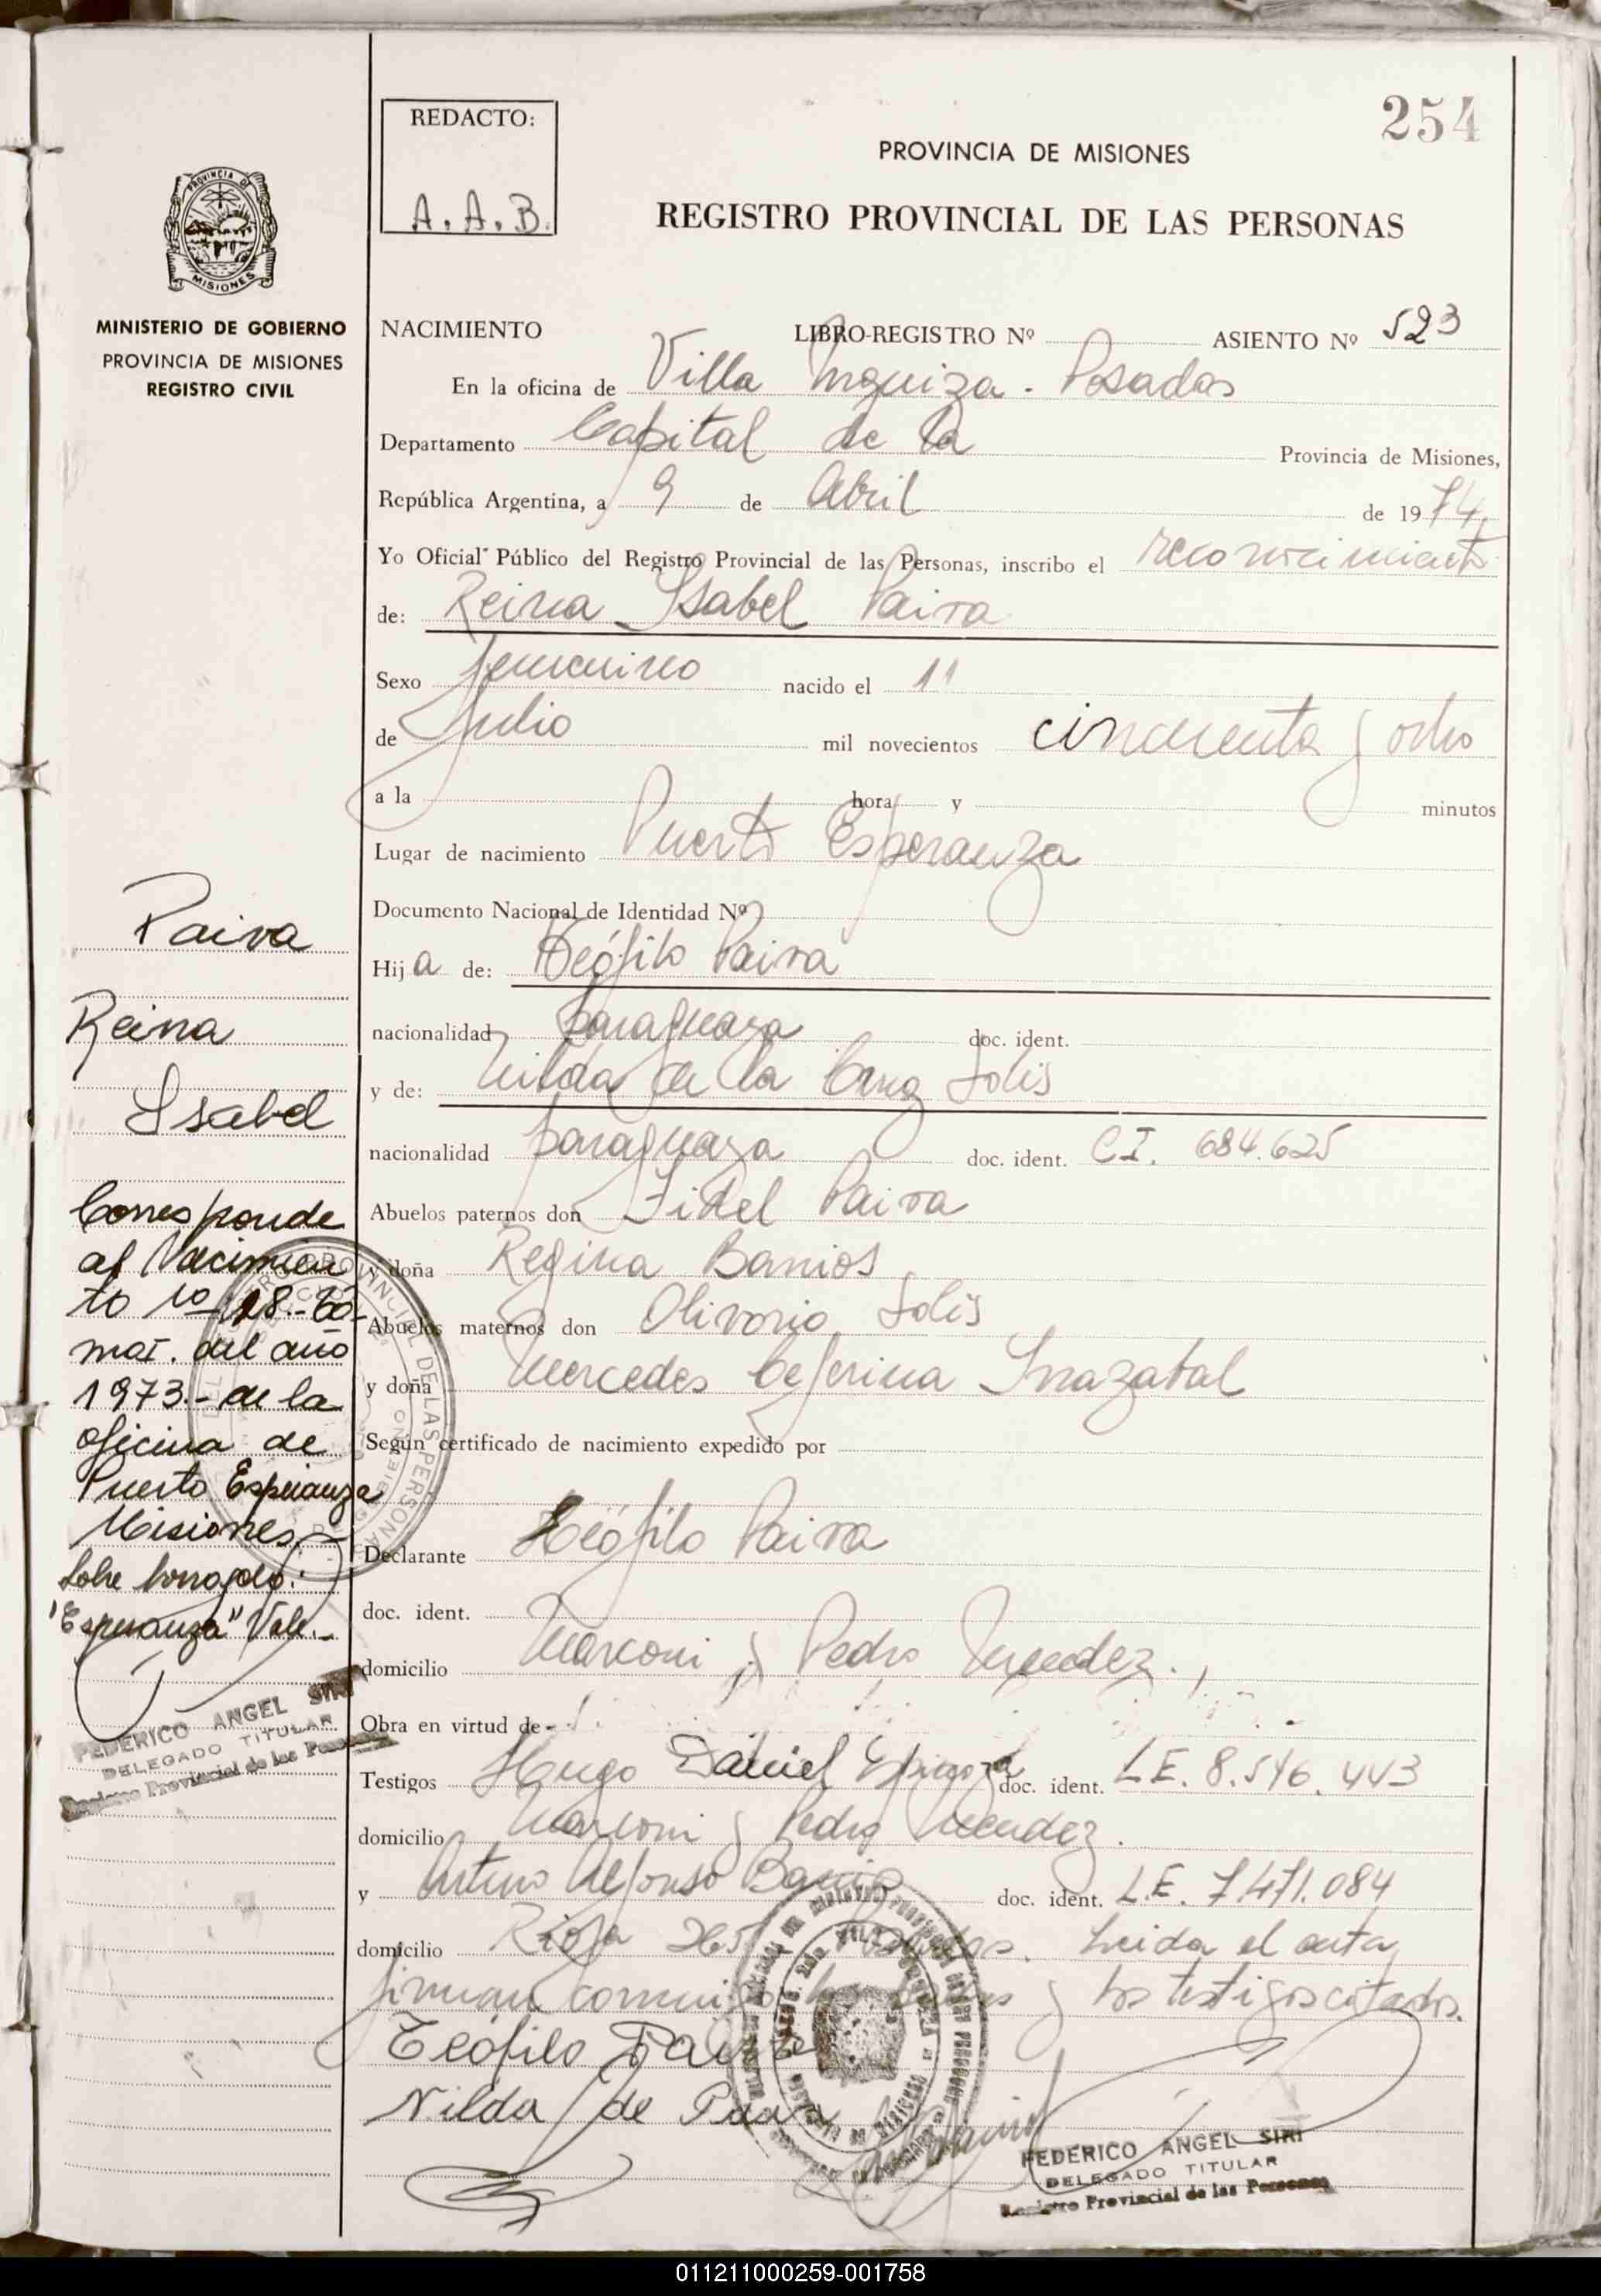 254
REDACTO:
A. A. B.
PROVINCIA DE MISIONES
REGISTRO PROVINCIAL DE LAS PERSONAS
PROVINCIA DE
MISIONES
MINISTERIO DE GOBIERNO
PROVINCIA DE MISIONES
REGISTRO CIVIL
NACIMIENTO LIBRO-REGISTRO Nº ASIENTO Nº 523
En la oficina de Villa Urquiza - Posadas
Departamento Capital de la Provincia de Misiones,
República Argentina, a 9 de Abril de 1974.
Yo Oficial Público del Registro Provincial de las Personas, inscribo el reconocimiento
de: Reina Isabel Paiva
Sexo femenino nacido el 11
de Julio mil novecientos cincuenta y ocho
a la hora y minutos
Lugar de nacimiento Puerto Esperanza
Documento Nacional de Identidad Nº
Hija de: Teófilo Paiva
nacionalidad paraguaya doc. ident.
y de: Nilda de la Cruz Solis
nacionalidad paraguaya doc. ident. C.I. 684.625
Abuelos paternos don Fidel Paiva
y doña Regina Barrios
Abuelos maternos don Olivorio Solis
y doña Mercedes Ceferina Irrazabal
Según certificado de nacimiento expedido por
Declarante Teófilo Paiva
doc. ident.
domicilio Marconi y Pedro Mendez.
Obra en virtud de
Testigos Hugo Daniel doc. ident. L.E. 8.546.443
domicilio Marconi y Pedro Mendez.
y Arturo Alfonso doc. ident. L.E. 7.471.084
domicilio Rioja Leida el acta
firman conmigo los padres y los testigos citados.
Teófilo Paiva
Nilda de Paiva
FEDERICO ANGEL SIRI
DELEGADO TITULAR
Registro Provincial de las Personas
Paiva
Reina
Isabel
Corresponde
al Nacimien
to Nº 28.-
mat. del año
1973.- de la
oficina de
Puerto Esperanza
Misiones
Sobre borrado:
"Esperanza" Vale.-
FEDERICO ANGEL SIRI
DELEGADO TITULAR
Registro Provincial de las Personas
011211000259-001758